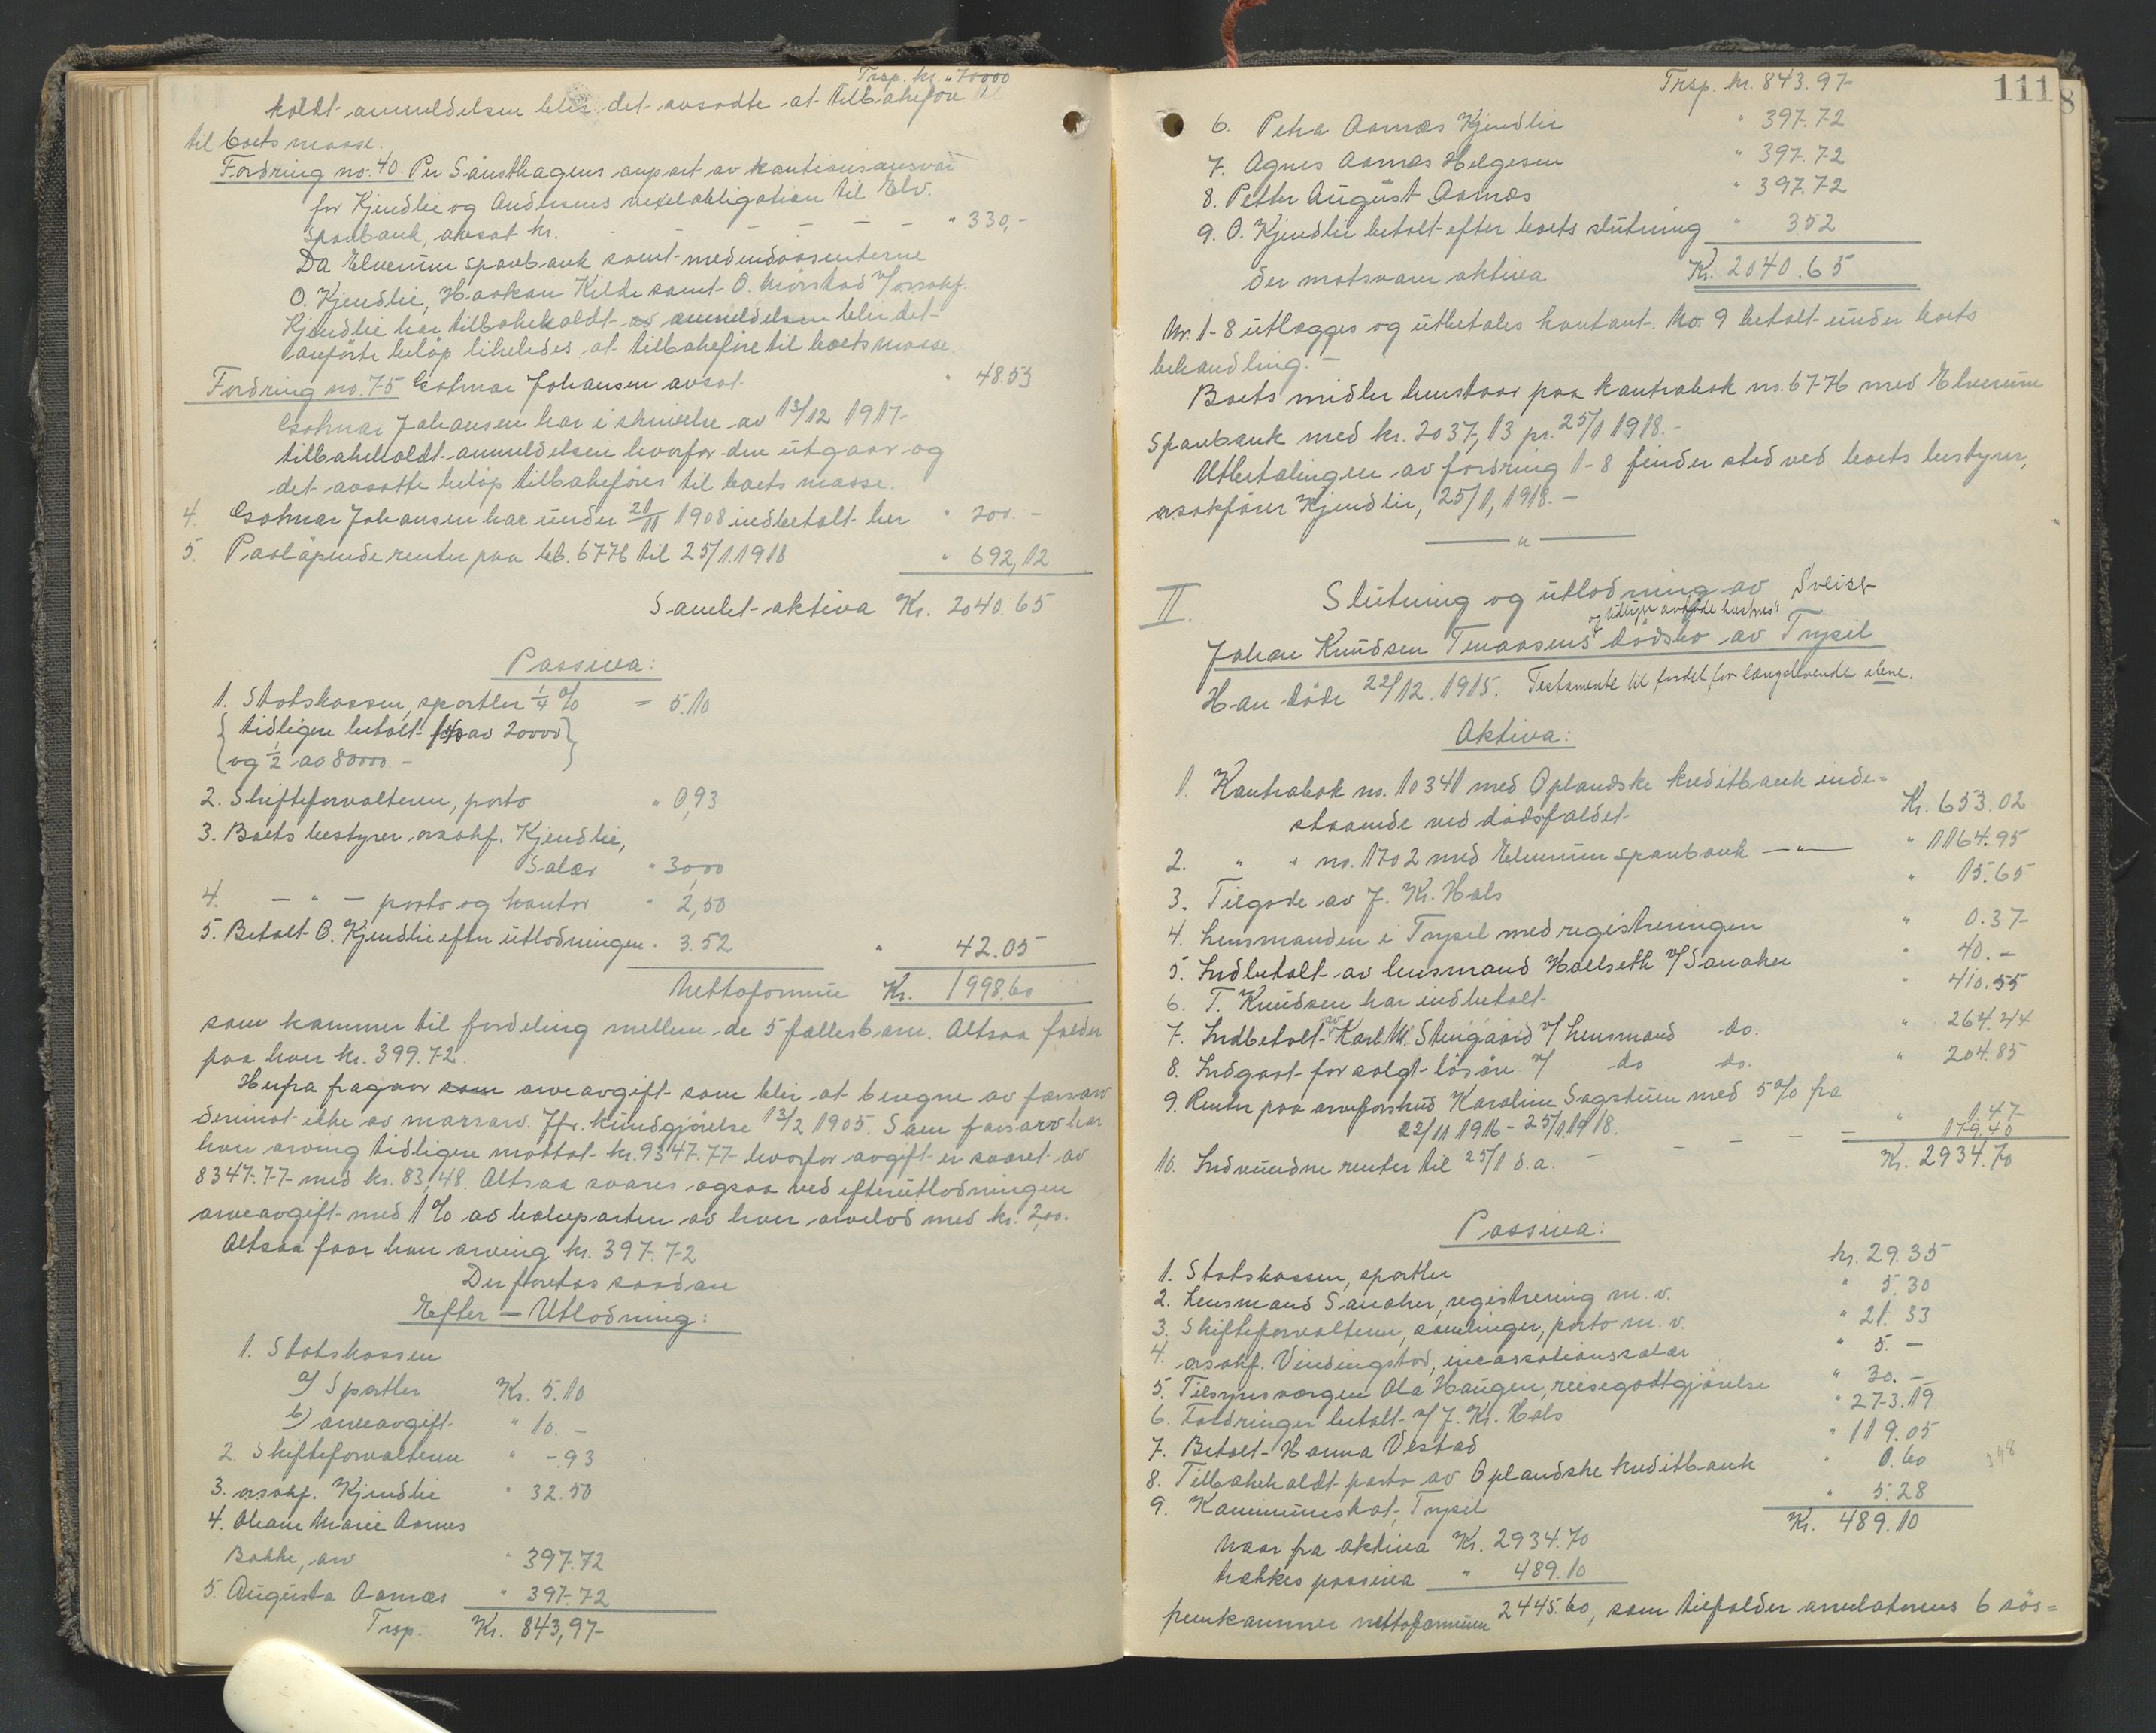 Trsp. kr. " 700.00
holdt anmeldelsen blir det avsadte at tilbakeföre
til boets masse.
Fordring no. 40. Per Sansthagens anpart av kautionsansvar
for Kjendlie og Andersens vexelobligation til Elv.
Sparbank, avsat kr. - - - - - " 330,-
Da Elverum sparbank samt medendossenterne
O. Kjendlie, Haakon Kilde samt O. Mörstad v/ orsakf.
Kjendlie har tilbakeholdt anmeldelsen blir det
anförte belöp likeledes at tilbakeföre til boets masse.
Fordring no. 75 Gotmar Johansen avsat " 48.53
Gotmar Johansen har i skrivelse av 13/12 1917
tilbakeholdt anmeldelsen hvorfor den utgaar og
det avsatte belöp tilbakeföres til boets masse.
4. Gotmar Johansen har under 21/11 1908 indbetalt her " 200.-
5. Paalöpende renter paa kb. 6776 til 25/1.1918 " 692,12
Samlet aktiva Kr. 2040.65
Passiva:
1. Statskassen, sportler 1/4 % = 5.10
{tidligere betalt av 20000
og 1/2 av 80000.-}
2. Skifteforvalteren, porto " 0,93
3. Boets bestyrer orsakf. Kjendlie,
Salær " 30,00
4. - " - porto og kontor " 2,50
5. Betalt O. Kjendlie efter utlodningen " 3.52 " 42.05
Nettoformue Kr. 1998.60
som kommer til fordeling mellem de 5 fællesbarn. Altsaa falder
paa hver kr. 399.72.
Herfra fragaar som arveavgift som blir at beregne av farsarv
derimot ikke av morsarv. Jfr. kundgjörelse 13/2 1905. Som farsarv har
hver arving tidligere mottat kr. 9347.77 hvorfor avgift er svaret av
8347.77 med kr. 83,48. Altsaa svares ogsaa ved efterutlodningen
arveavgift med 1% av halvparten av hver arvelod med kr. 2,00.
Altsaa faar hver arving kr. 397.72
Der foretas saadan
Efter - Utlodning:
1. Statskassen
a) Sportler Kr. 5.10
b) arveavgift " 10.-
2. Skifteforvalteren " -.93
3. orsakf. Kjendlie " 32.50
4. Marie Aamæs
Bakke, arv " 397.72
5. Augusta Aamæs " 397.72
Trsp. Kr. 843,97
Trsp. kr. 843.97
111
8
6. Petra Aamæs Kjendlie " 397.72
7. Agnes Aamæs Helgesen " 397.72
8. Petter August Aamæs " 397.72
9. O. Kjendlie betalt efter boets slutning " 3.52
der motsvarer aktiva Kr. 2040.65
Nr. 1-8 utlægges og utbetales kontant. No. 9 betalt under boets
behandling.-
Boets midler henstaar paa kontrabok no. 6776 med Elverum
Sparbank med kr. 2037,13 pr. 25/1 1918.-
Utbetalingen av fordring 1-8 finder sted ved boets bestyrer,
orsakförer Kjendlie, 25/1, 1918.-
— " —
II. Slutning og utlodning av Sveiser
og tidligere avdöde hustrus
Johan Knudsen Tenaasens dödsbo av Trysil
Han döde 22/12. 1915. Testamente til fordel for længstlevende alene.
Aktiva:
1. Kontrabok no. 10341 med Oplandske kreditbank inde-
staaende ved dödsfaldet Kr. 653.02
2. " " no. 1702 med Elverum sparbank — " — " 1164.95
3. Tilgode av J. Kr. Hals " 15.65
4. Lensmanden i Trysil med registreringen " 0.37
5. Indbetalt av lensmand Hallseth v/ Sanaker " 40.-
6. T. Knudsen har indbetalt " 410.55
7. Indbetalt av Karl M. Stengaard v/ Lensmand do. " 264.44
8. Indgaat for solgt lösöre v/ do do. " 204.85
9. Renter paa arveforskud Karoline Sagstuen med 5% fra
22/11 1916 - 25/1 1918. " 1.47
10. Indvundne renter til 25/1 d.a. - - - - - 179.40
Kr. 2934.70
Passiva:
1. Statskassen, sportler kr. 29.35
2. Lensmand Sanaker, registrering m.v. " 5.30
3. Skifteforvalteren, samlinger, porto m.v. " 21.33
4. orsakf. Vindingstad, incassationssalær " 5.-
5. Tilsynsværgen Ola Haugen, reisegodtgjörelse " 30.-
6. Fordringer betalt v/ J. Kr. Hals " 273.19
7. Betalt Hanna Vestad " 119.05
8. Tilbakeholdt porto av Oplandske kreditbank " 0.60
9. Kommuneskat, Trysil " 5.28
Kr. 489.10
Naar fra aktiva Kr. 2934.70
trækkes passiva " 489.10
fremkommer nettoformuen 2445.60, som tilfalder arvelaterens 6 sös=